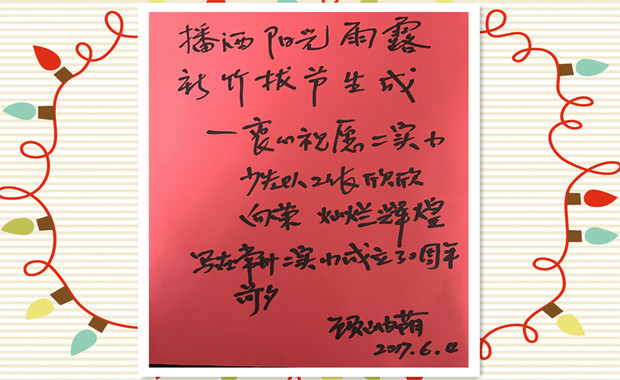 播洒阳光雨露
新竹拔节生成
—衷心祝愿二实小
少先队工作欣欣
向荣 灿烂辉煌
写在常州二实小成立30周年
前夕
2017.6.